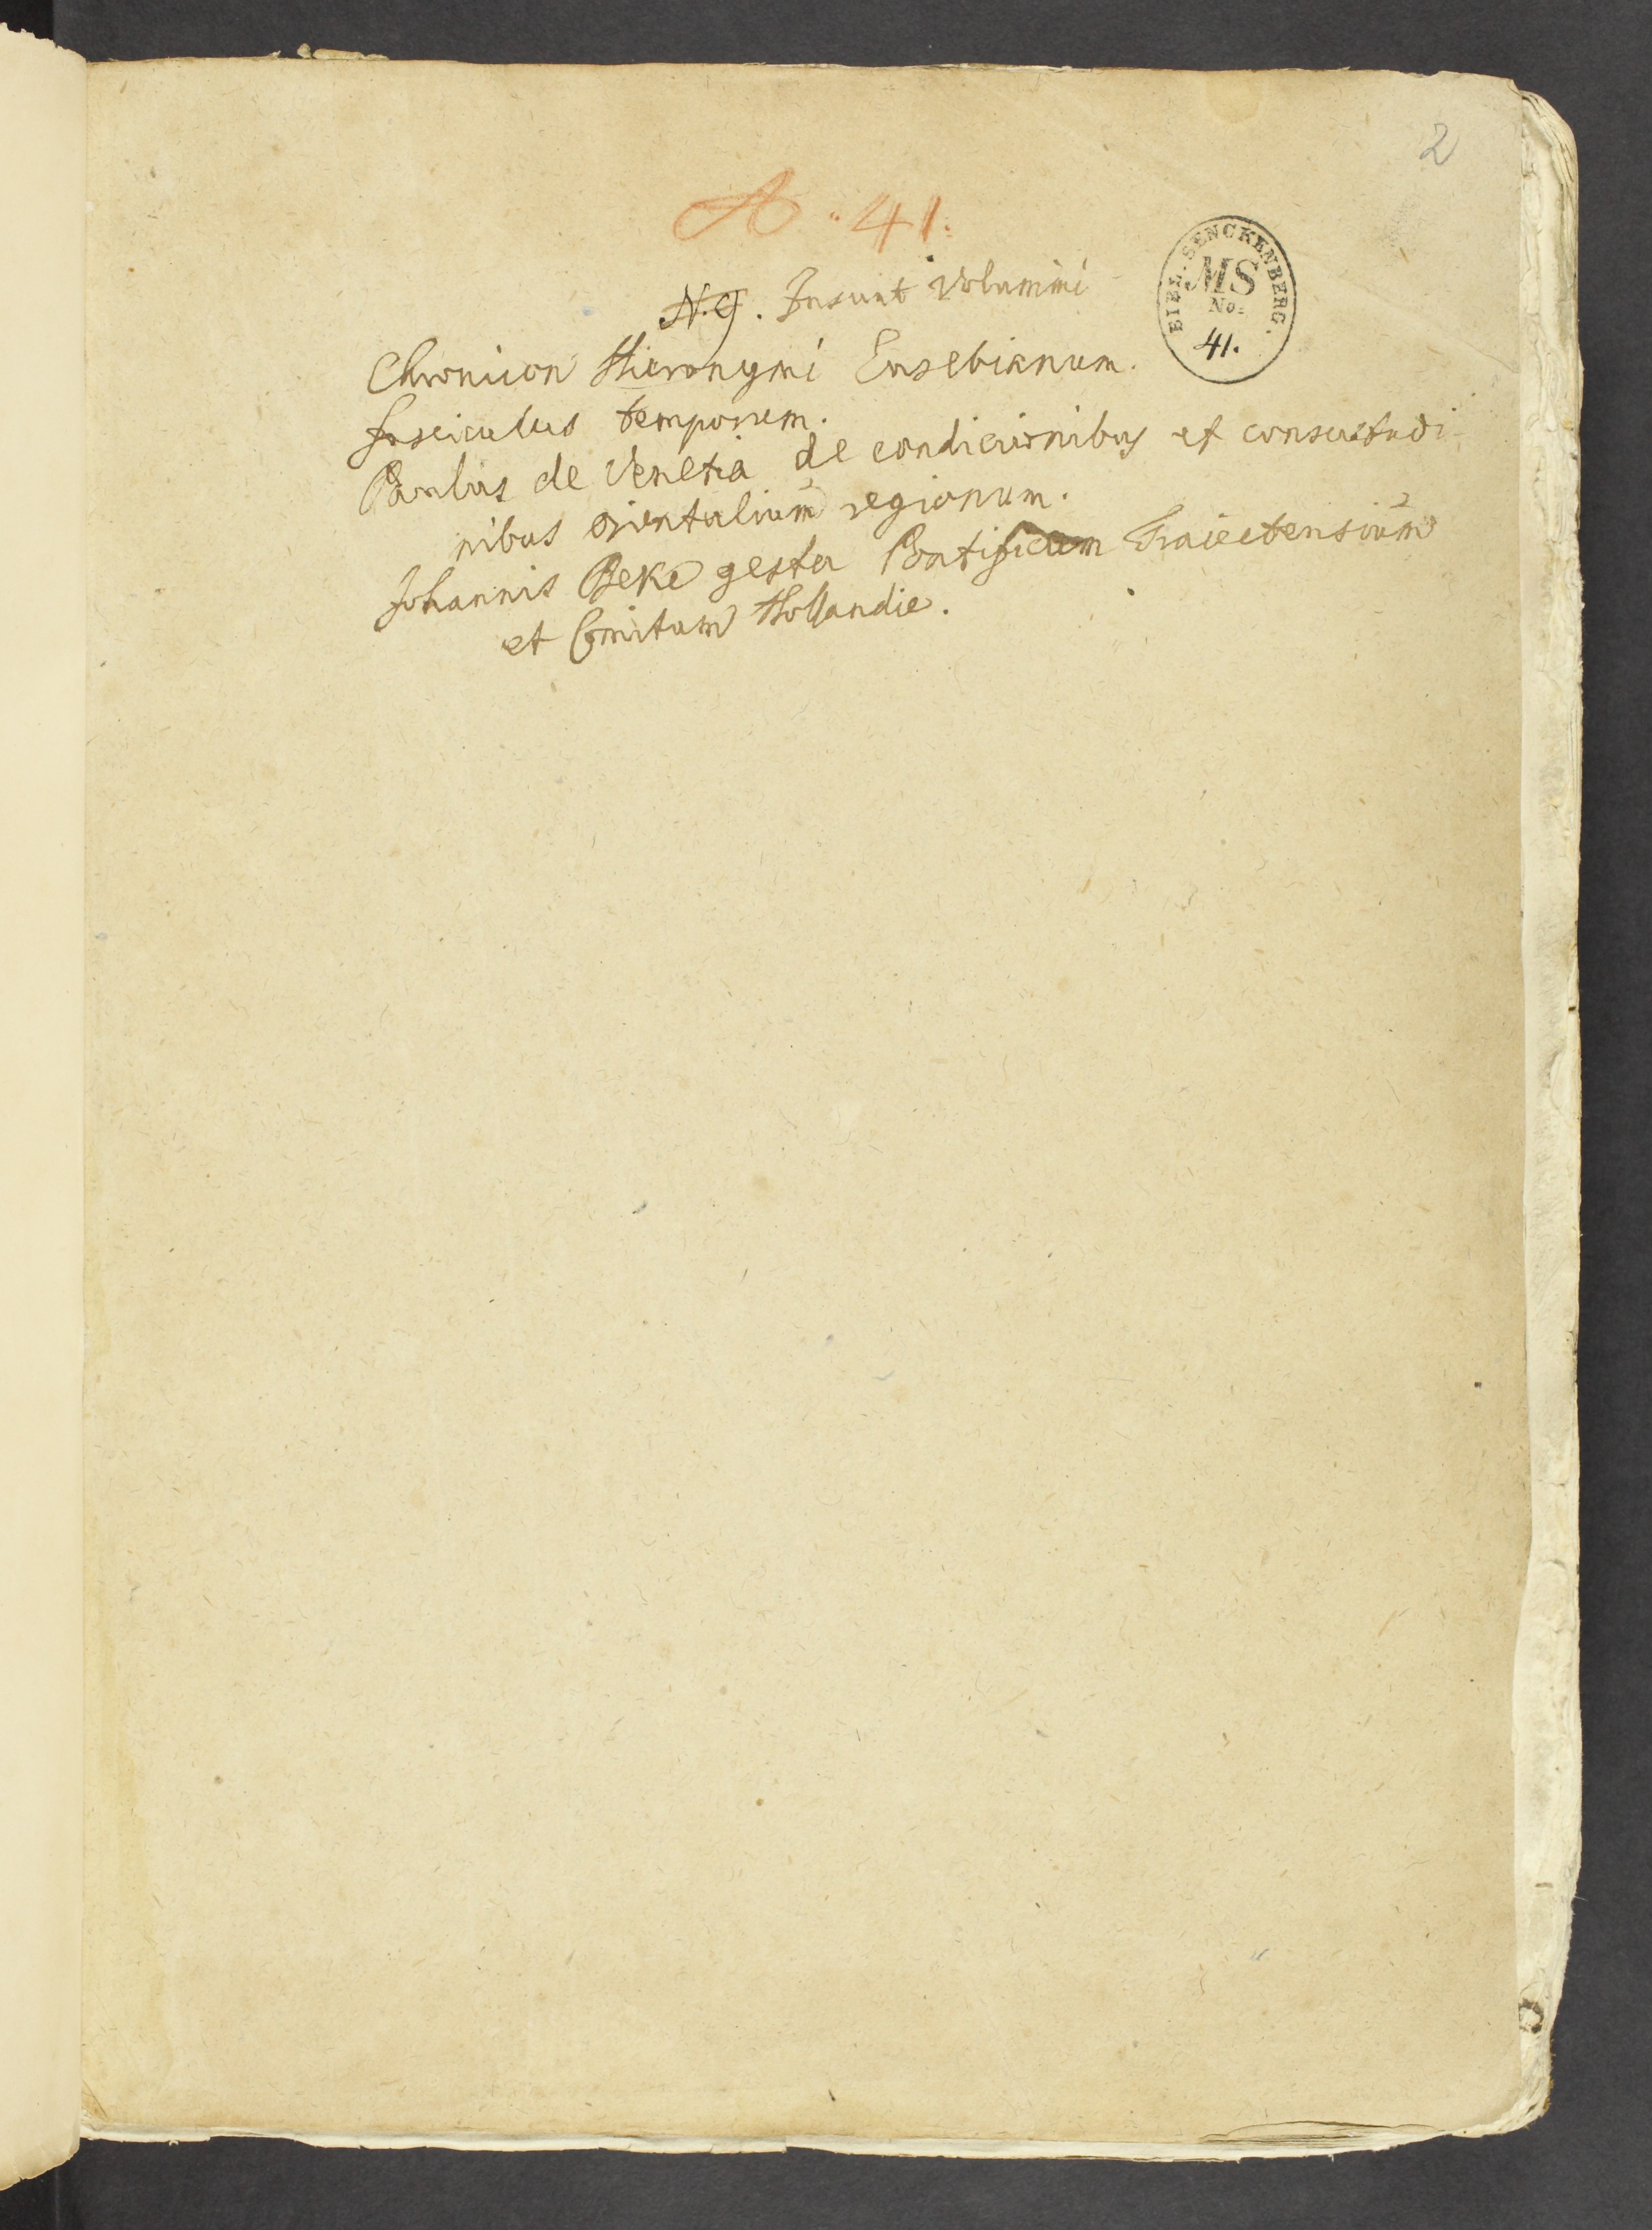 2
A. 41.
N. 9. Insunt Volumini
BIBL. SENCKENBERG.
MS
No.
41.
Chronicon Hieronymi Eusebianum.
fasciculus temporum.
Paulus de Venetia de condicionibus et consuetudi-
nibus orientalium regionum.
Johannis Beke gesta Pontificum Traiectensium
et Comitum Hollandie.